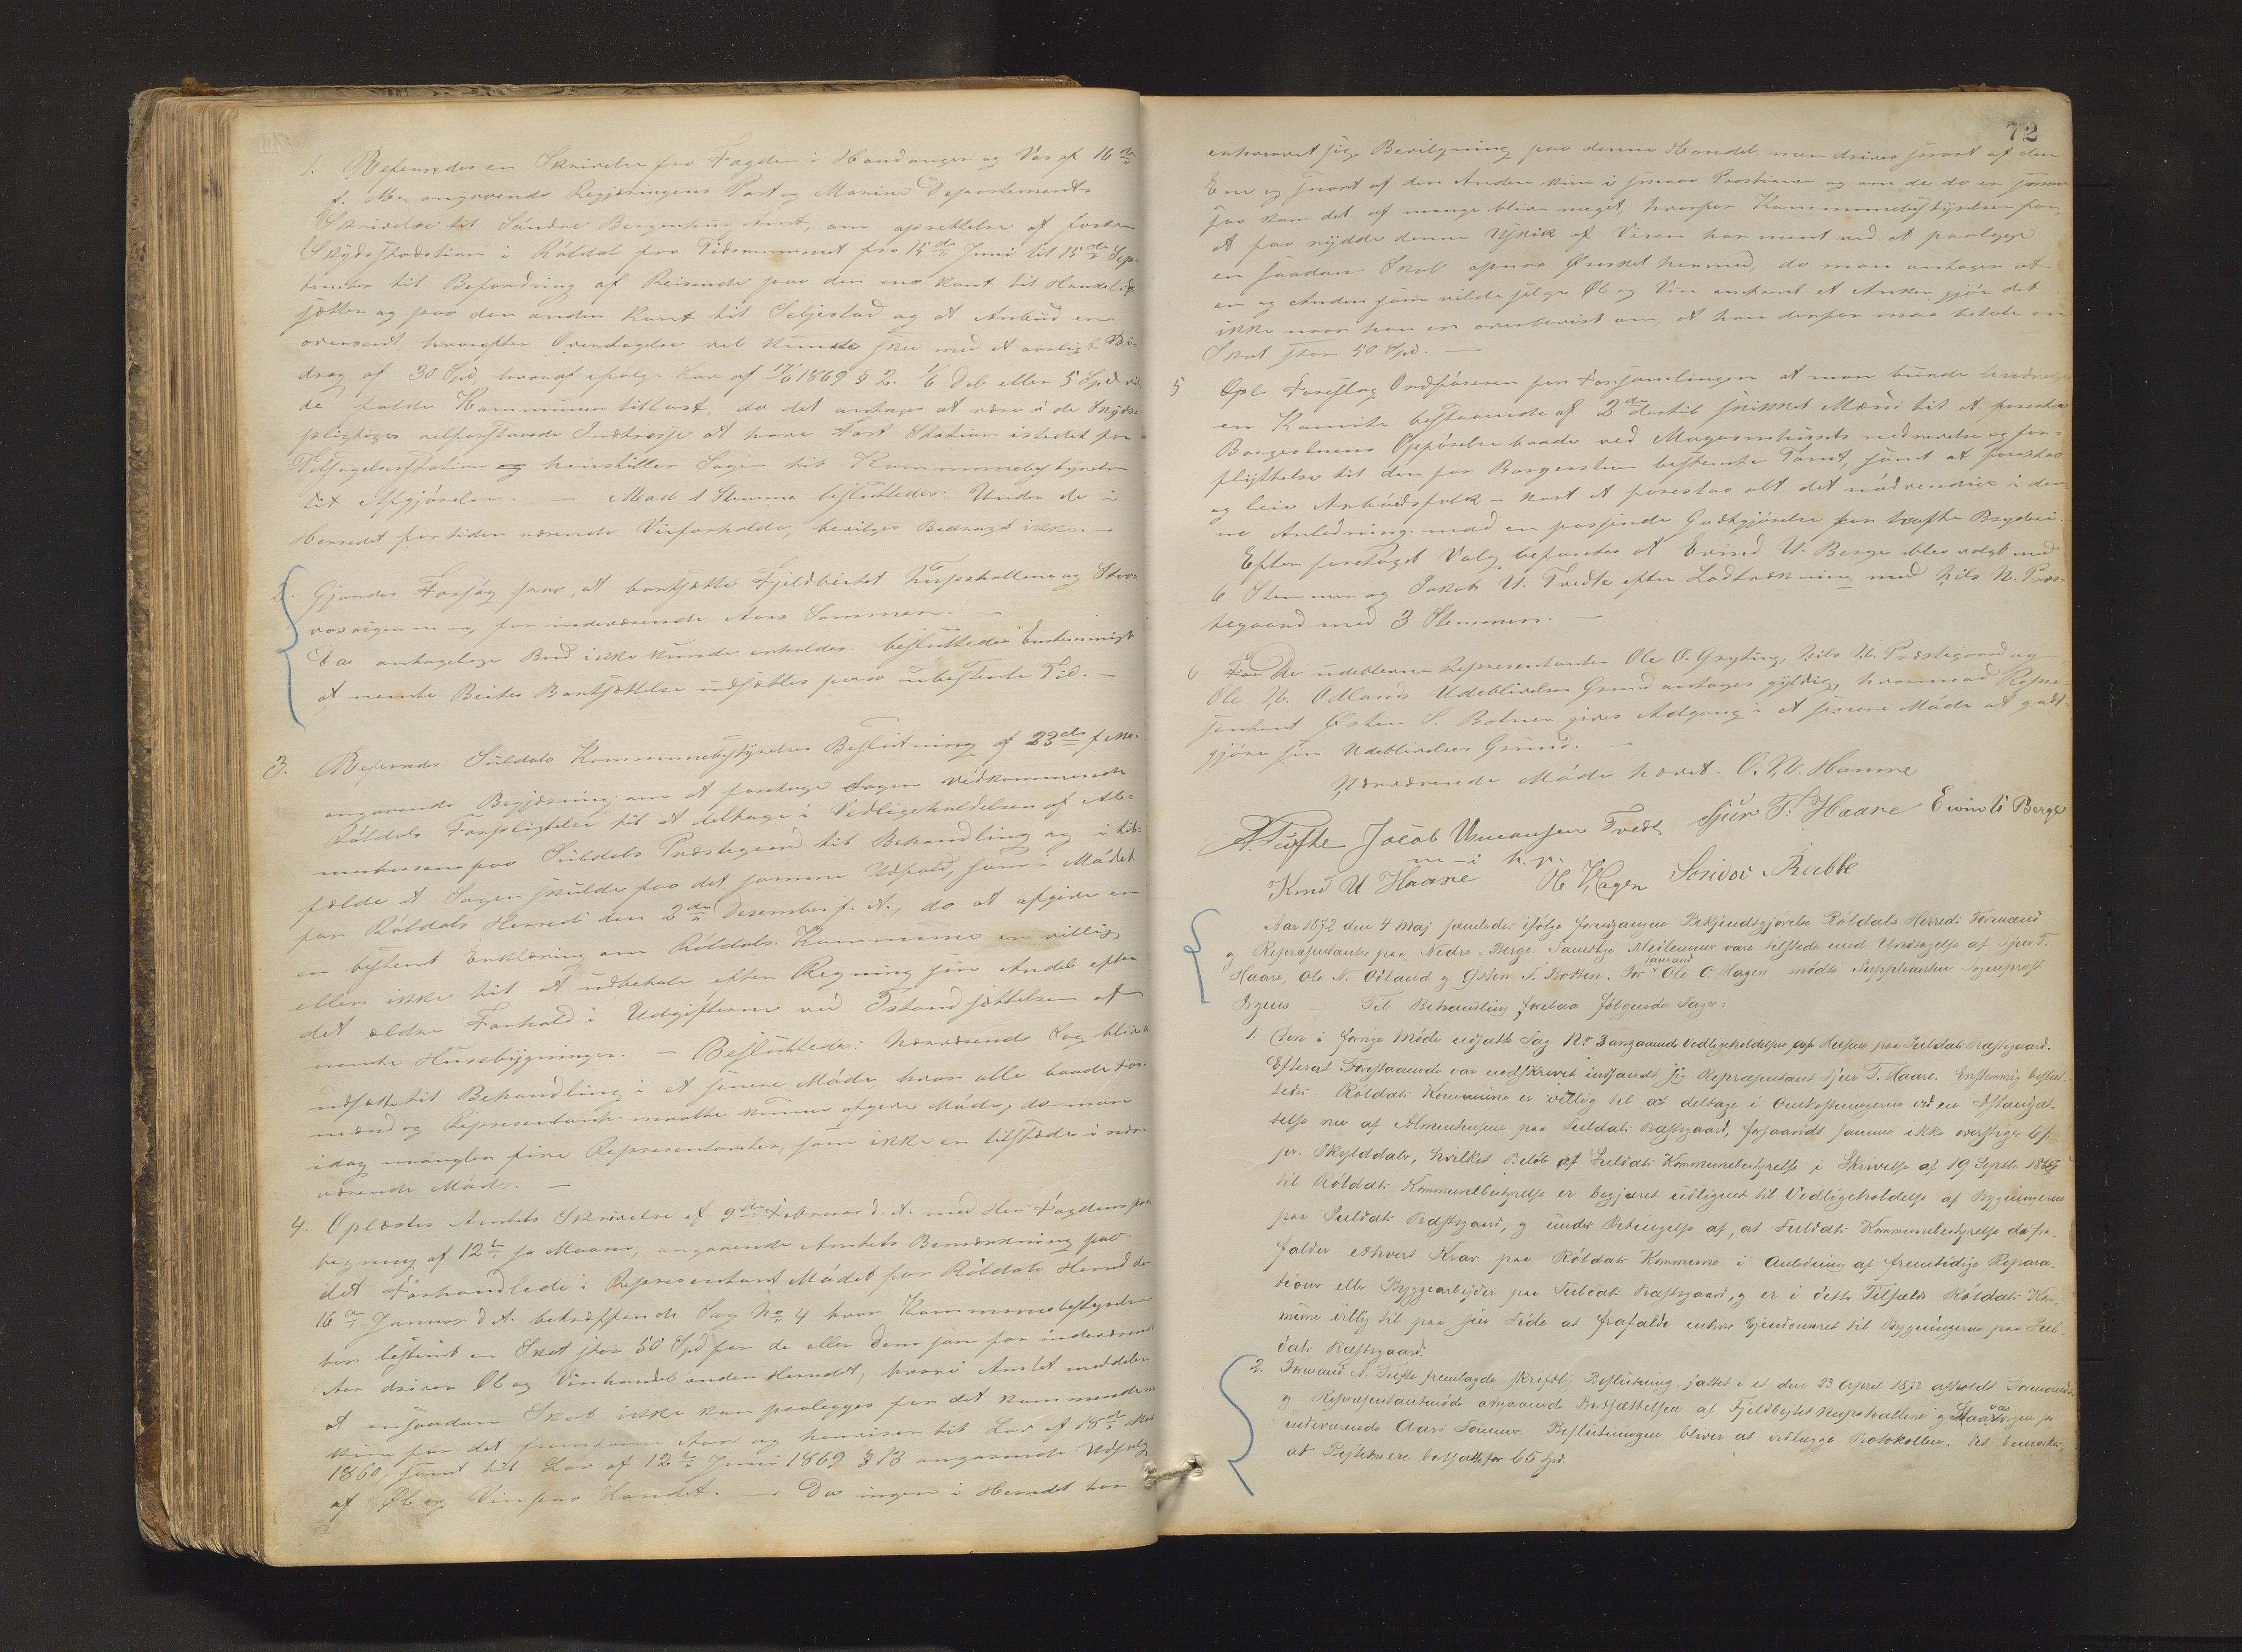 1. Refereredes en Skrivelse fra Fogden i Hardanger og Vos af 16de
f. M. angaaende Regjæringens Post og Marine Departements
Skrivelse til Søndre Bergenhus Amt, om oprettelse af faste
Skydsstation i Röldal fra Tidsrummet fra 15de Juni til 15de Sep-
tember til Befordring af Reisende paa den ene Kant til Horrebræk-
sætter og paa den anden Kant til Seljestad og et Anbud er
oversendt, hvorefter Overtagelse vel kunde skee med et aarligt Bi-
drag af 30 Spd, hvoraf ifølge Lov af 17/6 1869 § 2. 1/6 Del eller 5 Spd vil-
de falde Kommunen tillast, da det antages at være i de Skyds-
pligtiges velforstaaede Intræsse at have Fast Station istedet for
Tilsigelsesstation og henstiller Sagen til Kommunebestyrelsen
til Afgjörelse. — Mod 1 Stemme besluttedes: Under de i
Herredet for tiden værende Veiforholde, bevilges Bedraget ikke. —
2. Gjordes Forsög paa, at bortsætte Fjeldbeitet Nupshallene og Stor-
vasvigen for indeværende Aars Sommer. —
Da antagelige Bud ikke kunde erholdes besluttedes Enstemmigt
at nemte Beites Bortsættelse udsættes paa ubestemt Tid. —
3. Refereredes Suldals Kommunebestyrelses Beslutning af 23de f. M.
angaaende Begjæring om at foretage Sagen vedkommende
Röldals Forpligtelse til at deltage i Vedligeholdelsen af Al-
muehusene paa Suldals Præstegaard til Behandling og i til-
fælde at Sagen skulde faa det samme Udfald, som i Mödet
for Röldals Herred den 2den Desember f. A., da at afgive en
en bestemt Erklæring om Röldals Kommune er villig
eller ikke til at udbetale efter Regning sin Andel efter
det ældre Forhold i Udgifterne ved Istandsættelsen af
nemte Husebygninger. — Besluttedes: Nærværende Sag blive
udsatte til Behandling i et senere Möde hvor alle baade For-
mænd og Representanter maatte kunne afgive Möde, da man
idag mangler fire Representanter, som ikke er tilstæde i nær-
værende Möde. —
4. Oplæstes Amtets Skrivelse af 9de Februar d. A. med Hr. Fogdens paa-
tegning af 12te f. Maaned, angaaende Amtets Bemærkning paa
det Forhandlede i Representant Mödet for Röldals Herred den
16de Januar d. A. betræffende Sag No 4 hvor Kommunebestyrelsen
har bestemt en Skat stor 50 Spd for de eller dem som for indeværende
Aar driver Øl og Vinhandel inden Herredet, hvori Amtet meddeler
at ensaadan Skat ikke kan paalegges for det kommende men
kun for det fremfarne Aar og henviser til Lov af 18de Mai
1860, samt til Lov af 12te Juni 1869 § 13 angaaende Udsalg
af Øl og Vin paa Landet. — Da ingen i Herredet har
72
erhvervet sig Bevilgning paa denne Handel men drives snart af den
Ene og snart af den Anden kun i smaae Prostioner og om de da er smaae
saa kan det af mange blive meget, hvorfor Kommunebestyrelsen for,
at faa rydde denne Uskik af Veien har ment ved at paalegge
en saadan Skat opnaa Ønsket hermed, da man antager at
en og Anden som vilde selge Øl og Vin anhand et Anker gjör det
ikke naar han er overbevist om, at han derfor maa betale en
Skat stor 50 Spd. —
5 Opl. Foreslog Ordföreren for Forsamlingen at man burde
en Komite bestaaende af 2de dertil skikket Mænd til at forestaa
Borgestuens Opförelse baade ved Magasinhusets nedrivelse og for-
flyttelse til den for Borgerstuen bestemte Tomt, samt at forestaa
og leie Arbeidsfolk — kort at forestaa alt det nödvendige i den-
ne Anledning mod en passende Godtgjörelse for havte Bryderi
Efter foretaget Valg befantes at Eivind U. Berge blev valgt med
6 Stemmer og Jakob U. Tvedte efter Lodtrækning med Nils N. Præs-
tegaard med 3 Stemmer. —
6 For De udeblevne Representanter Ole O. Gryting, Nils N. Præstegaard og
Ole N. Odlands Udeblivelses Grund antages gyldig, hvormod Repre-
sentant Østen S. Botnen gives Adgang i et senere Möde at godt-
gjöre sin Udeblivelses Grund. —
Nærværende Möde hævet. O. N. Hamre
A. Tufte Jacob Umansen Tvedt Sjur T. Haare Eivind U Berge
m – i h. p.
Knud U Haare Ole Hagen Sondov Rabbe
Aar 1872 den 4 Maj samledes ifölge foregaaende Bekjendtgjörelse Röldals Herreds Formænd
og Repræsentanter paa Nedre-Berge. Samtlige Medlemmer vare tilstede med Undtagelse af Sjur T.
Haare, Ole N. Odland og Østen S. Botten. For Formand Ole O Hagen mödte Suppleanten Sogneprest
Til Behandling foretaes følgende Sager:
1. Den i forrige Möde udsatte Sag No 3 angaaende Vedligeholdelse af Husene paa Suldals Præstegaard.
Efterat Forestaaende var nedskrevet indfandt sig Repræsentant Sjur T. Haare. Enstemmig beslut-
tedes Röldals Kommune er villig til at deltage i Omkostningerne ved en Istandsæt-
telse nu af Almuehusene paa Suldals Præstegaard, forsaavidt samme ikke overstiger 6 ſ
pr. Skylddaler, hvilket Beløb af Suldals Kommunebestyrelse i Skrivelse af 19 Septbr. 1865
til Röldals Kommunebestyrelse er begjæret udlignet til Vedligeholdelse af Bygningerne
paa Suldals Præstegaard, og under Betingelse af, at Suldals Kommunebestyrelse da fra-
falder ethvert Krav paa Röldals Kommune i Anledning af fremtidige Repara-
tioner eller Byggearbejder paa Suldals Præstegaard, og er i dette Tilfælde Röldals Kom-
mune villig til paa sin Side at frafalde enhver Ejendomsret til Bygningerne paa Sul-
dals Præstegaard.
2. Formand A. Tufte fremlagde skriftlig Beslutning fattet i et den 23 April 1872 afholdt Formænds-
og Repræsentantmöde angaaende Bortsættelsen af Fjeldbejtet Nupshallene og Staavasvigen for
indeværende Aars Sommer. Beslutningen bliver at vedlægge Protokollen. Det bemærkes,
at Bejterne ere bortsatte for 65 Spd.